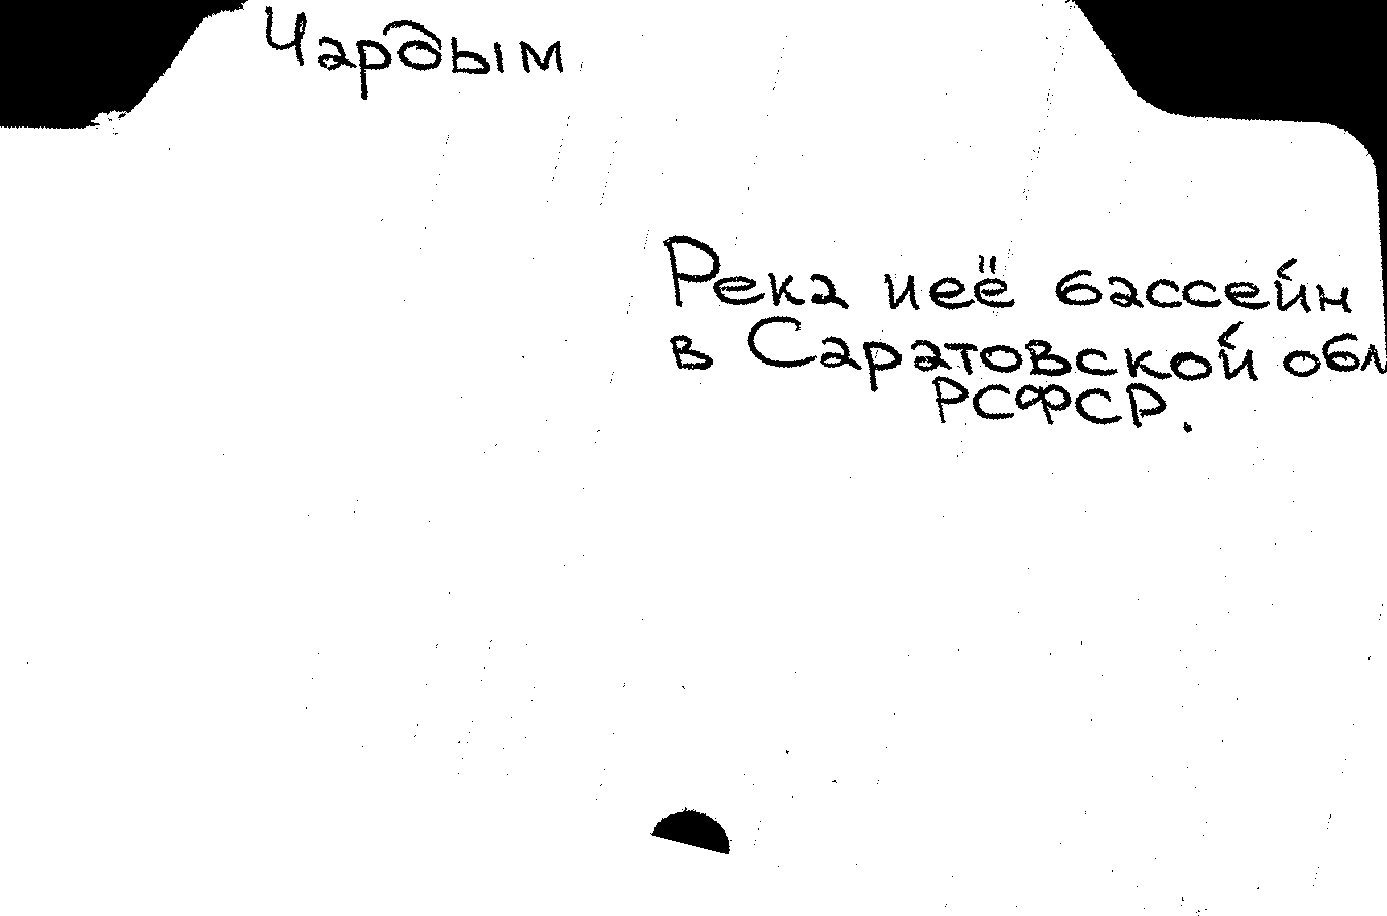 Чардым
Река и её бассейн
в Саратовской обл
РСФСР.